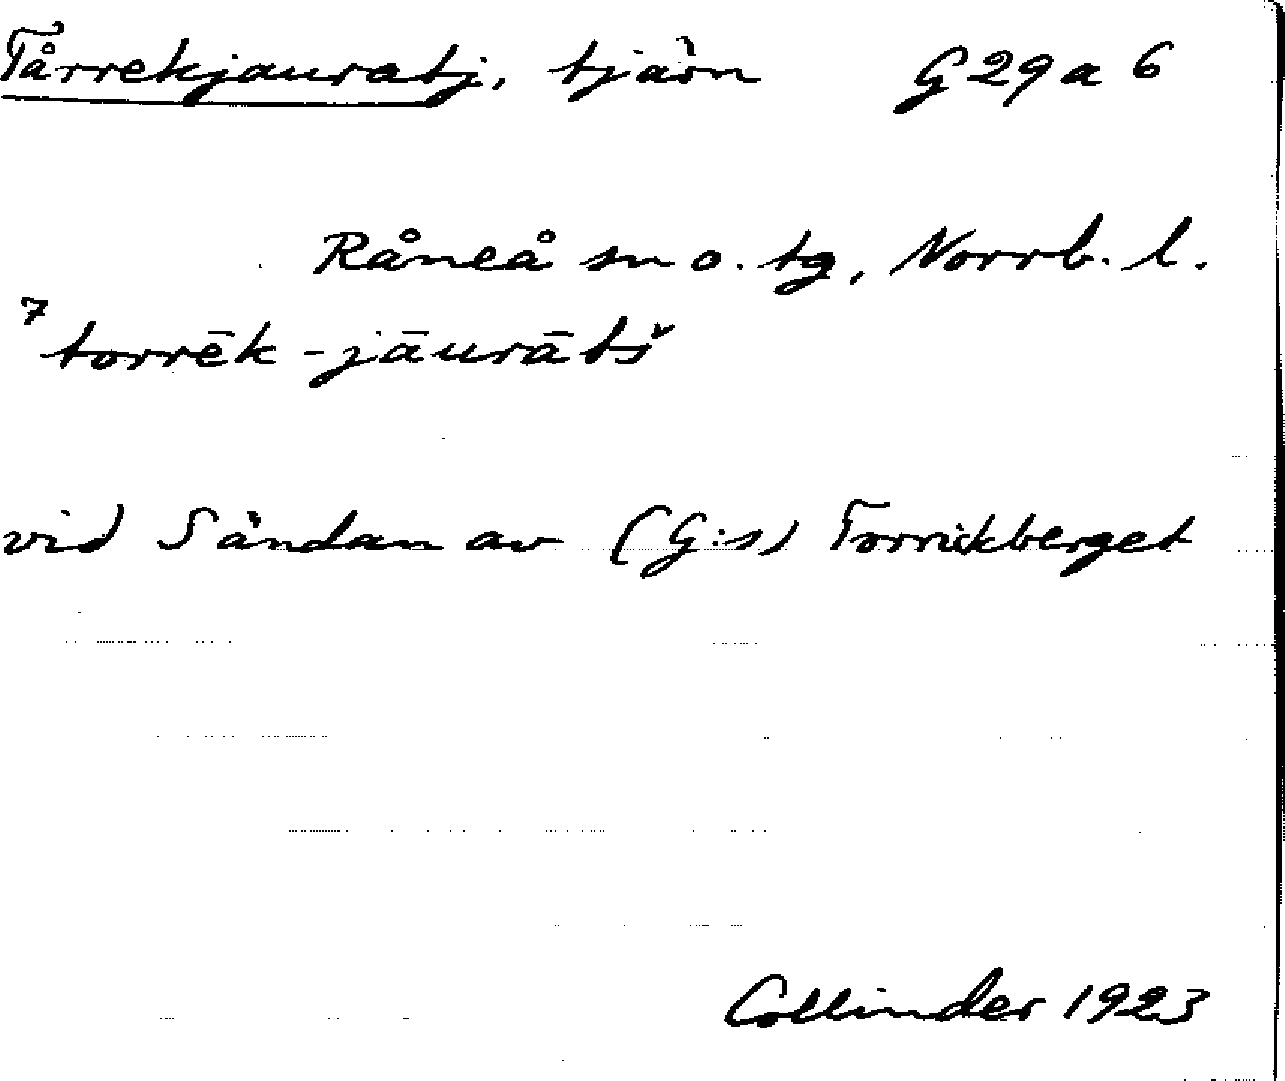 Tårrekjauratj, tjärn G 29 a 6
Råneå sn o. tg, Norrb. l.
7 torrēk-jāurātš
vid Sändan av (G:s) Torrikberget
Collinder 1923